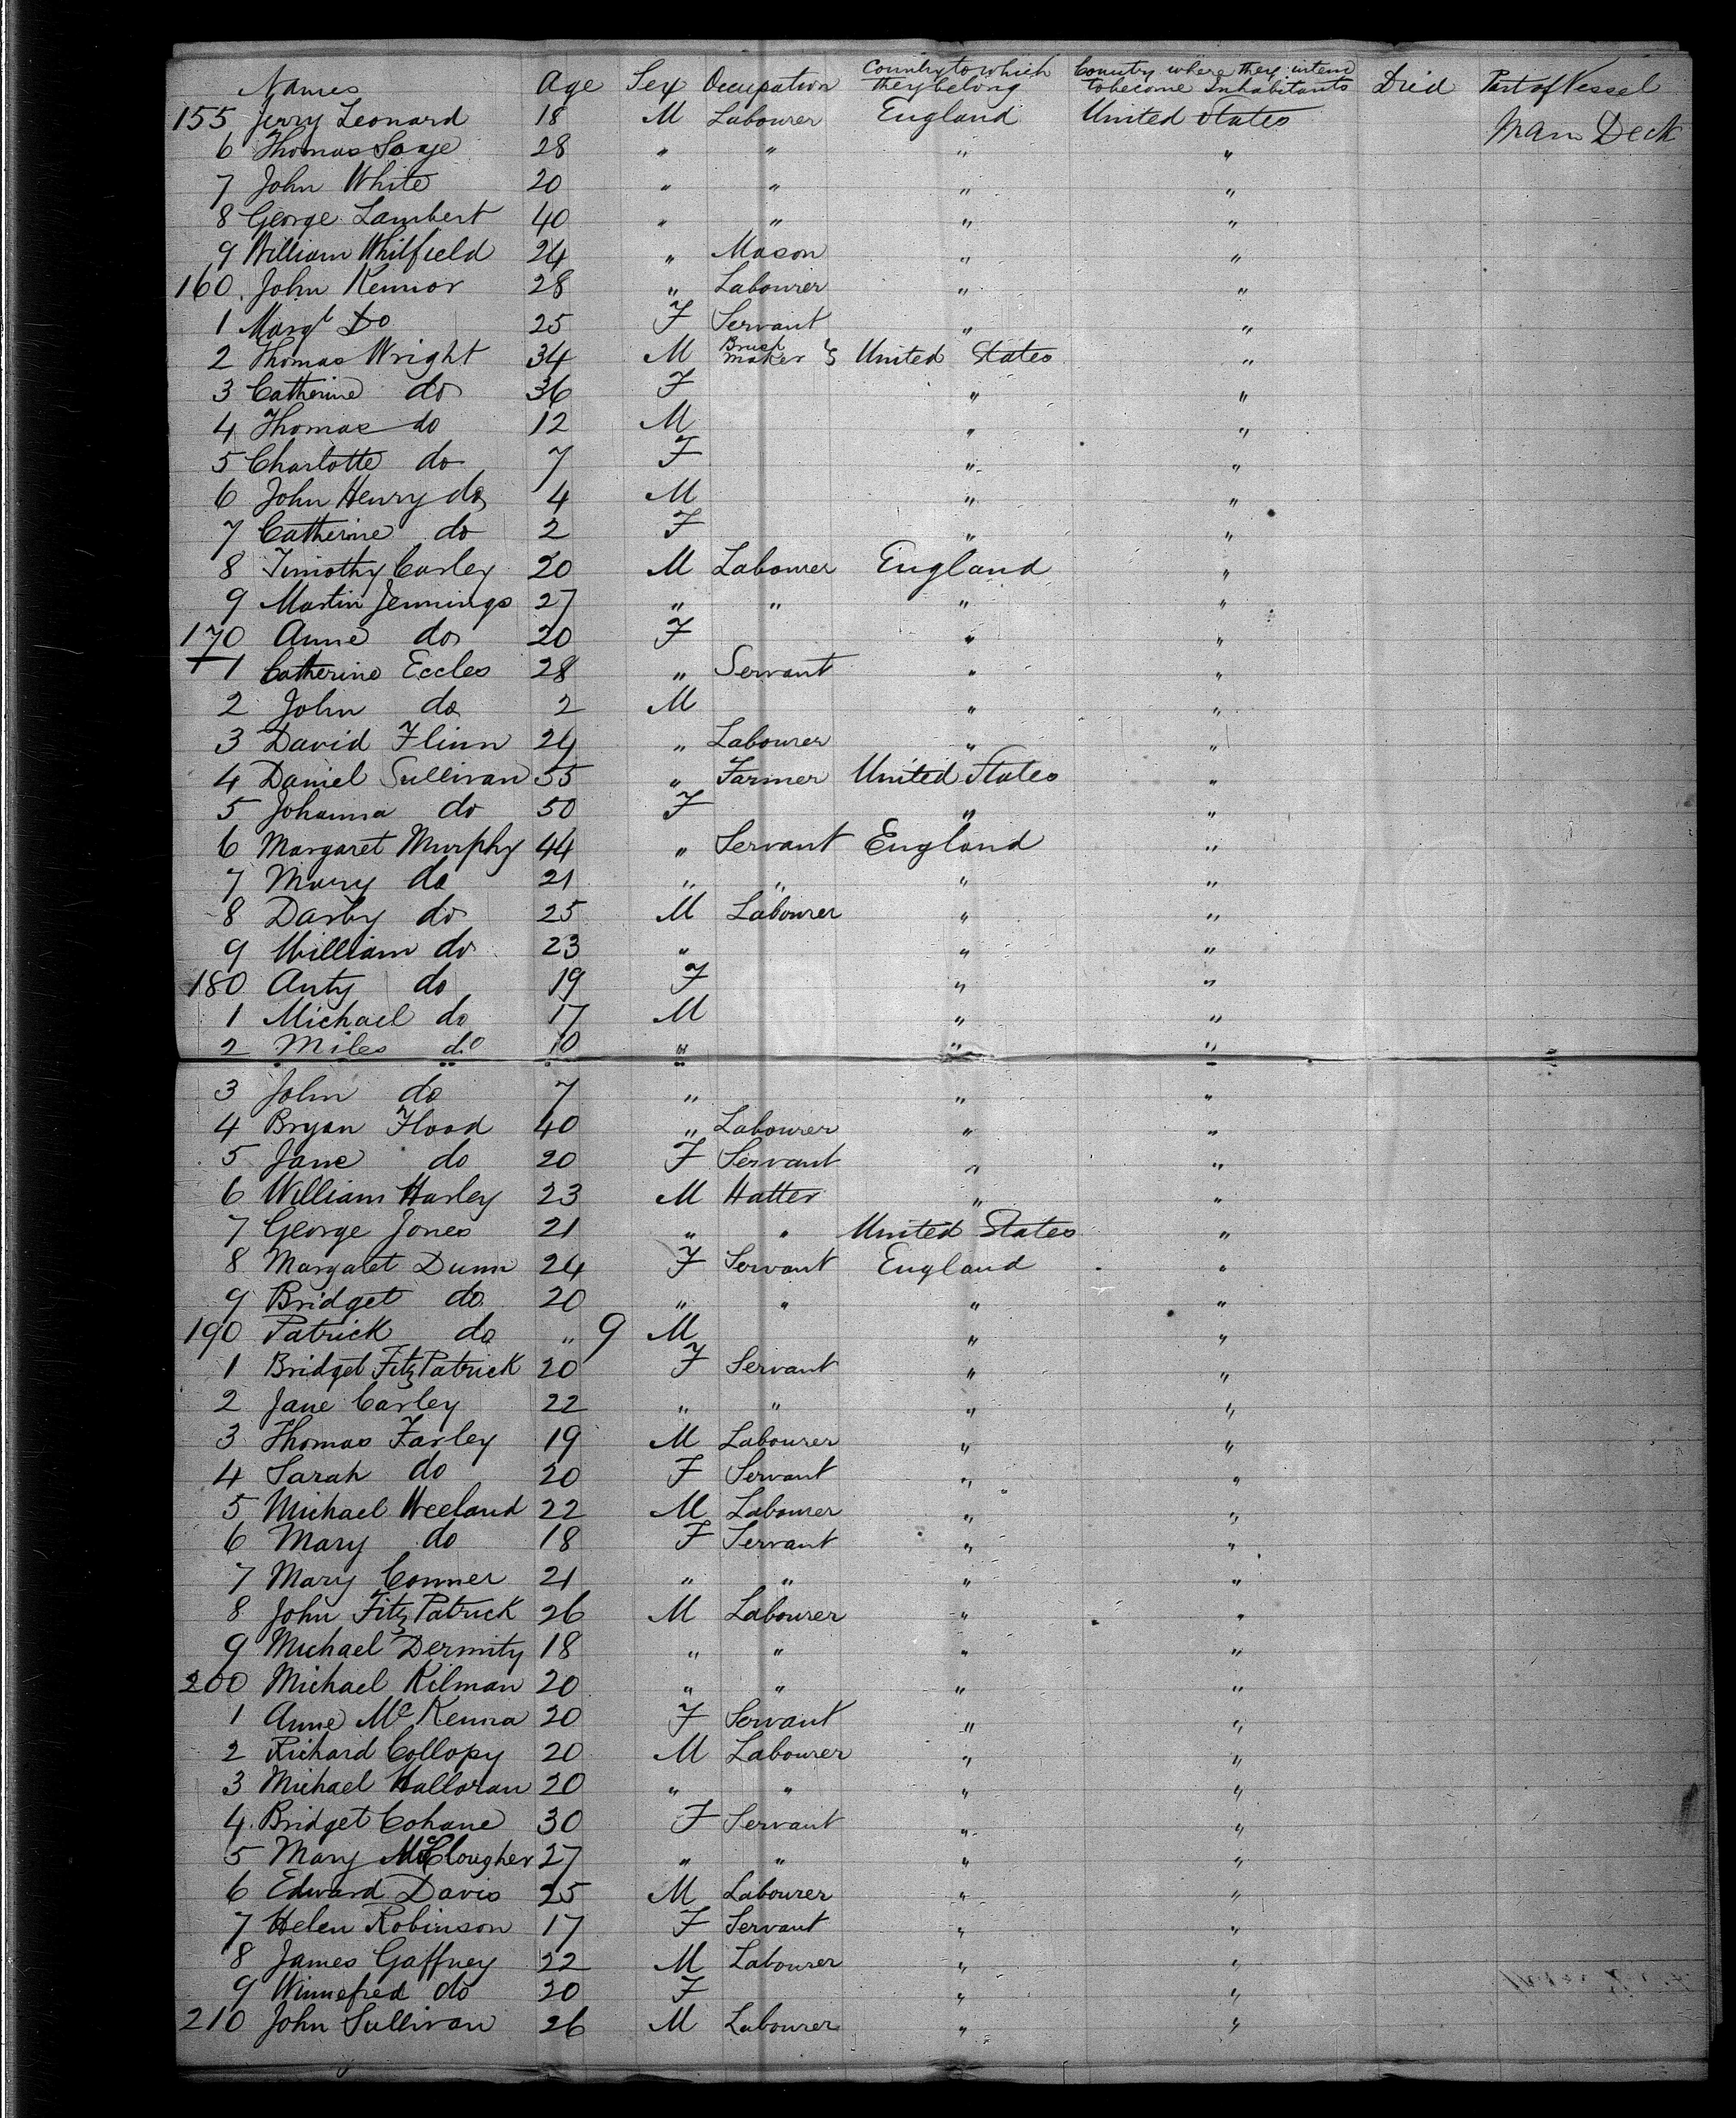 Names Age Sex Occupation Country to which they belong Country where they intend to become Inhabitants Died Part of Vessel
155 Jerry Leonard 18 M Labourer England United States Main Deck
6 Thomas Saye 28 " " " "
7 John White 20 " " " "
8 George Lambert 40 " " " "
9 William Whitfield 24 " Mason " "
160 John Kennor 28 " Labourer " "
1 Margt Do 25 F Servant " "
2 Thomas Wright 34 M Brush maker United States "
3 Catherine do 36 F " "
4 Thomas do 12 M " "
5 Charlotte do 7 F " "
6 John Henry do 4 M " "
7 Catherine do 2 F " "
8 Timothy Carley 20 M Labourer England "
9 Martin Jennings 27 " " " "
170 Anne do 20 F " "
1 Catherine Eccles 28 " Servant " "
2 John do 2 M " "
3 David Flinn 24 " Labourer " "
4 Daniel Sullivan 55 " Farmer United States "
5 Johanna do 50 F " "
6 Margaret Murphy 44 " Servant England "
7 Mary do 21 " " " "
8 Darby do 25 M Labourer " "
9 William do 23 " " "
180 Anty do 19 F " "
1 Michael do 17 M " "
2 Miles do 10 " " "
3 John do 7 " " "
4 Bryan Flood 40 " Labourer " "
5 Jane do 20 F Servant " "
6 William Harley 23 M Hatter " "
7 George Jones 21 " " United States "
8 Margaret Dunn 24 F Servant England "
9 Bridget do 20 " " " "
190 Patrick do " 9 M " "
1 Bridget FitzPatrick 20 F Servant " "
2 Jane Carley 22 " " " "
3 Thomas Farley 19 M Labourer " "
4 Sarah do 20 F Servant " "
5 Michael Heeland 22 M Labourer " "
6 Mary do 18 F Servant " "
7 Mary Conner 21 " " " "
8 John FitzPatrick 26 M Labourer " "
9 Michael Dermity 18 " " " "
200 Michael Kilman 20 " " " "
1 Anne McKenna 20 F Servant " "
2 Richard Collopy 20 M Labourer " "
3 Michael Halloran 20 " " " "
4 Bridget Cohane 30 F Servant " "
5 Mary McClougher 27 " " " "
6 Edward Davis 25 M Labourer " "
7 Helen Robinson 17 F Servant " "
8 James Gaffney 22 M Labourer " "
9 Winnefred do 20 F " "
210 John Sullivan 26 M Labourer " "